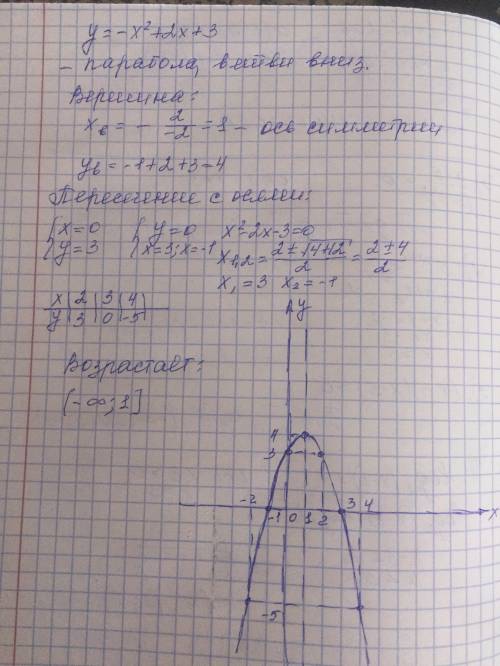 y=-x²+2x+3
- парабола, ветви вниз.
Вершина:
xв = - 2/-2 = 1 - ось симметрии
yв = -1+2+3=4
Пересечение с осями:
{x=0 {y=0 x²-2x-3=0
{y=3 {x=3; x=-1 x1,2 = (2±√4+12)/2 = (2±4)/2
x₁=3 x₂=-1
x | 2 | 3 | 4 |
y | 3 | 0 | -5 |
Возрастает:
[-∞; 1]
y
4
3
-2 3 4
-1 0 1 2 x
-5